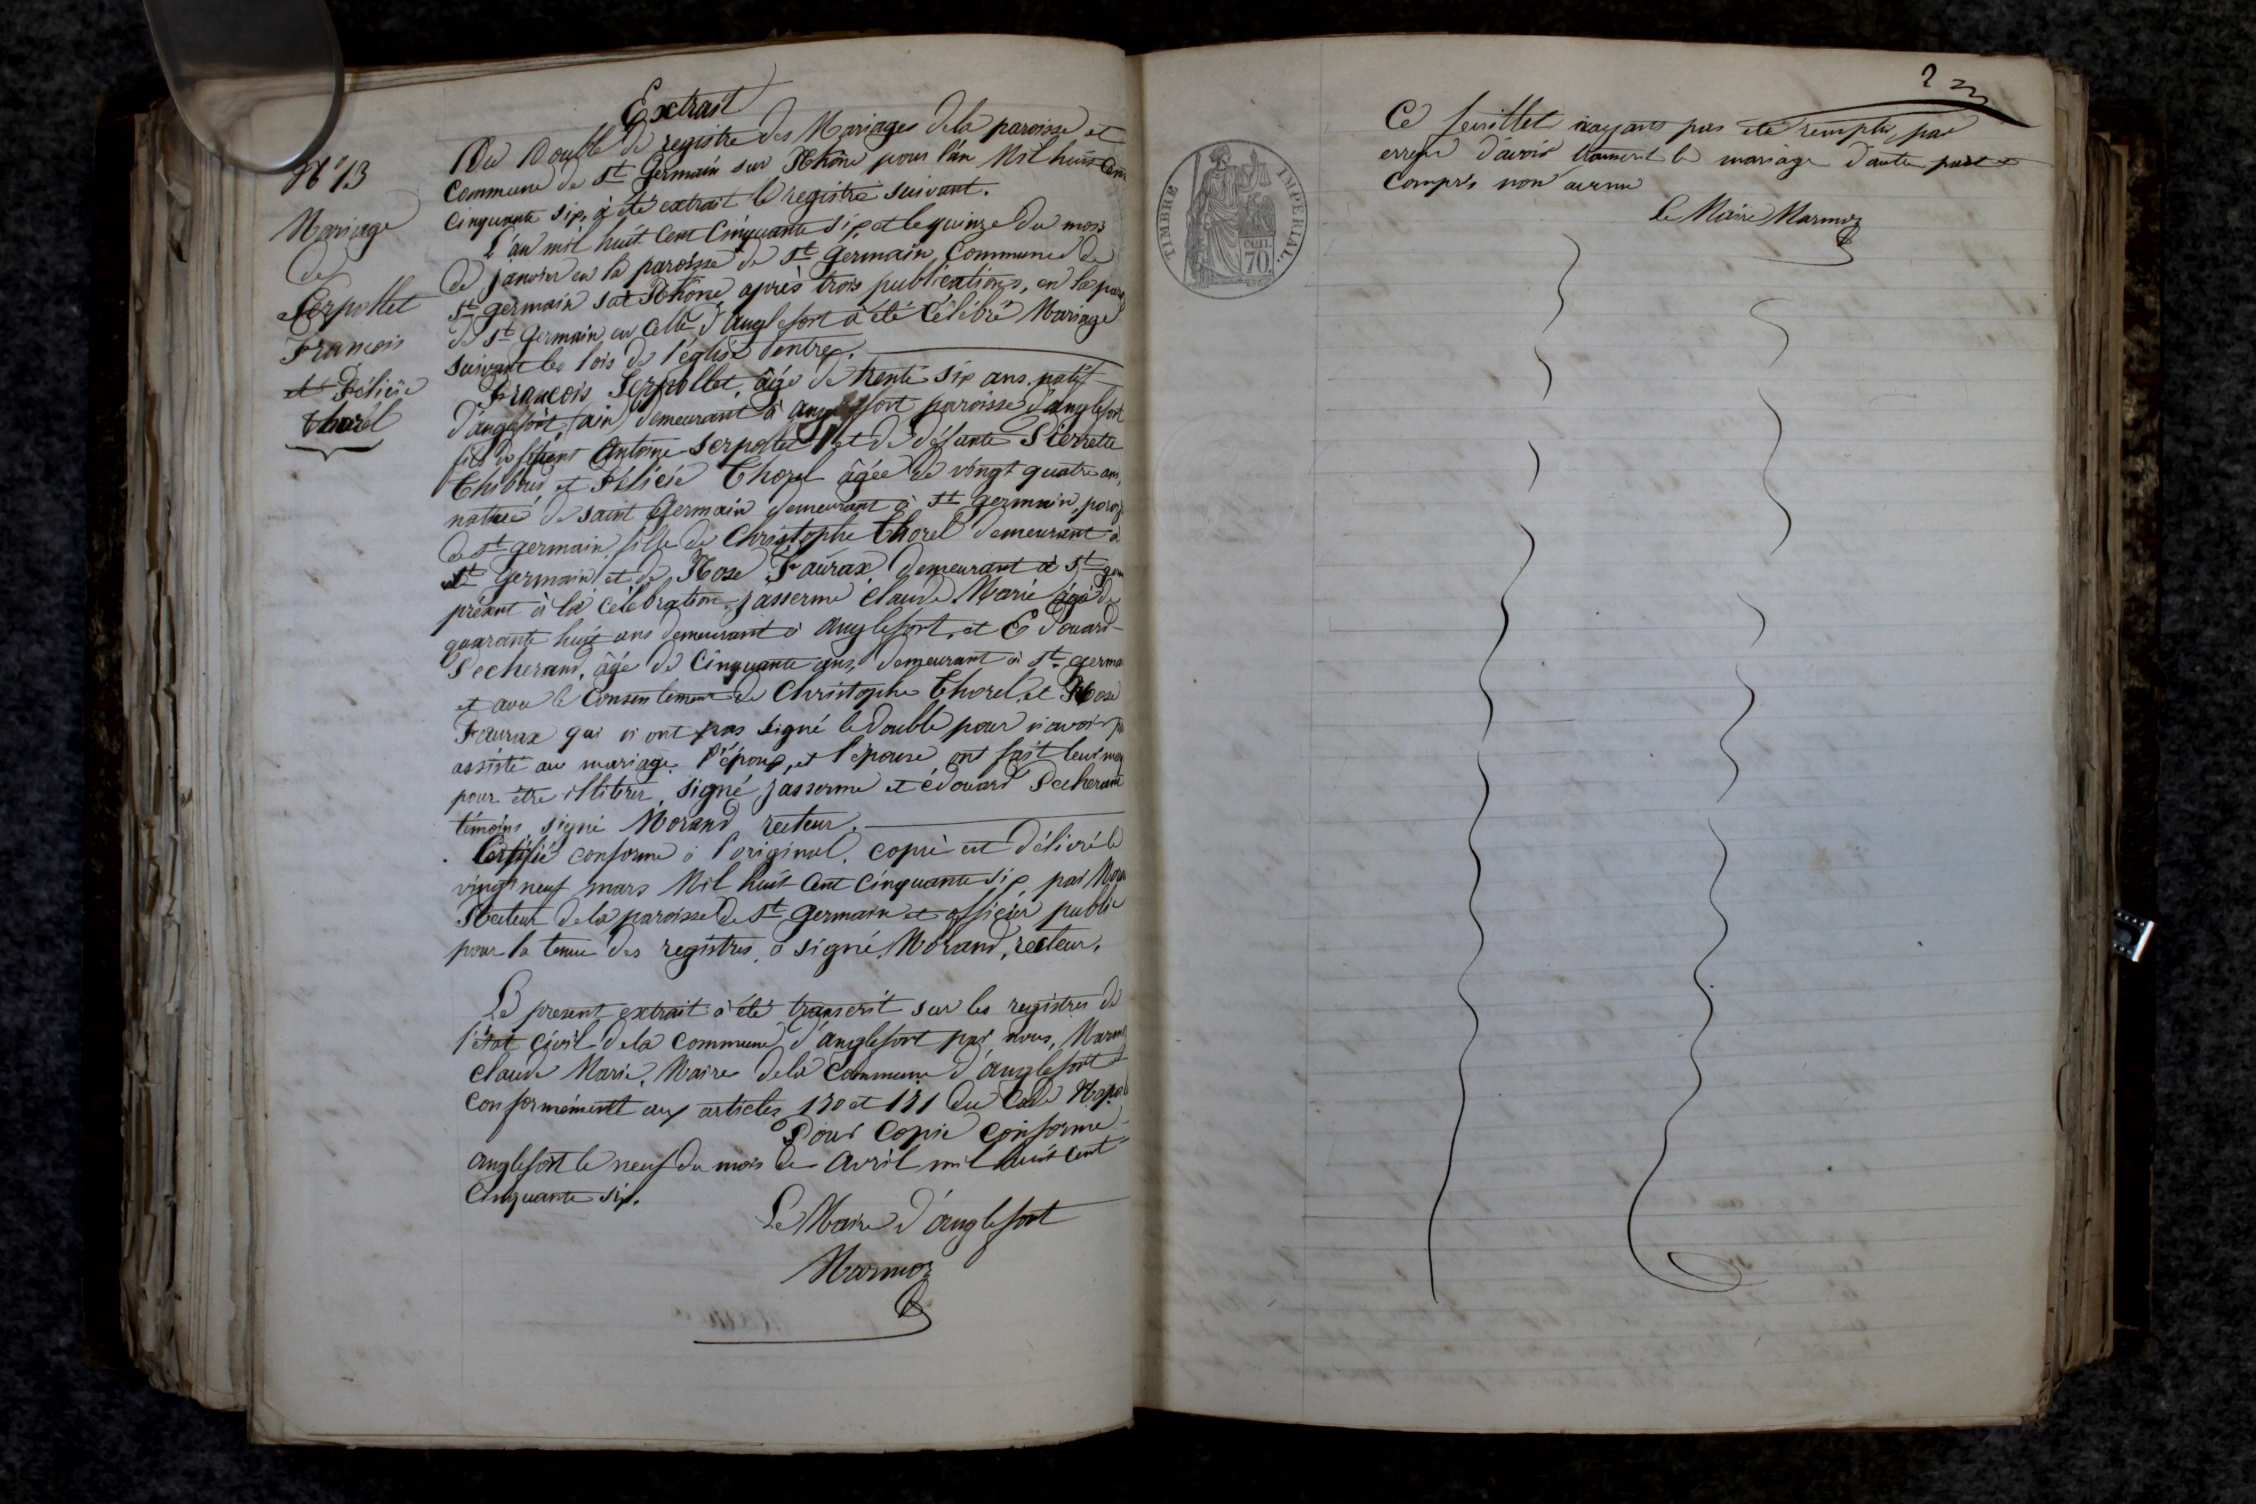 N° 13
Mariage
de
Serpollet
François
et Félicie
Thorel
Extrait
Du Double de registre des Mariages de la paroisse et
commune de St Germain sur Rhône pour l'an Mil huit cent
cinquante six, à été extrait le registre suivant.
L'an mil huit cent cinquante six et le quinze du mois
de janvier en la paroisse de St Germain, Commune de
St germain sur Rhône, après trois publications, en la
de St Germain en celle d'anglefort à été célébré Mariage
suivant les lois de l'église d'entre.
François Serpollet, âgé de trente six ans, natif
d'anglefort, (ain) demeurant à anglefort paroisse d'anglefort
fils de défunt Antoine Serpollet et de défunte Pierrette
et Félicie Thorel âgée de vingt quatre ans,
native de saint Germain demeurant à St germain,
de St germain, fille de Christophe Thorel demeurant à
St Germain et de Rose Faurax demeurant à St
présent à la célébration, jasserme claude Marie âgé de
quarante huit ans demeurant à anglefort, et Edouard
Decherand, âgé de Cinquante ans, demeurant à St germa
et avec le Consentement de Christophe Thorel, et Rose
Faurax qui n'ont pas signé le double pour n'avoir
assisté au mariage. l'époux, et l'épouse ont fait leur
pour être illitérés, signé jasserme et édouard Decherand
témoins signé Morand recteur.
Certifié conforme à l'original. copie est délivré le
vingt neuf mars Mil huit Cent cinquante six, par
Recteur de la paroisse de St Germain et officier public
pour la tenue des registres, à signé, Morand, recteur.
Le present extrait à été transcrit sur les registres de
l'état civil de la commune d'anglefort par nous,
claude Marie, Maire de la Commune d'anglefort
conformément aux articles 170 et 171 du Code
Pour Copie conforme
anglefort le neuf du mois de avril mil huit cent
Cinquante six.
Le Maire d'anglefort
Marmoz
TIMBRE IMPERIAL
70
Ce feuillet n'ayant pas été remplis, par
erreur d'avoir le mariage d'autre part
compris non avenu
Le Maire Marmoz